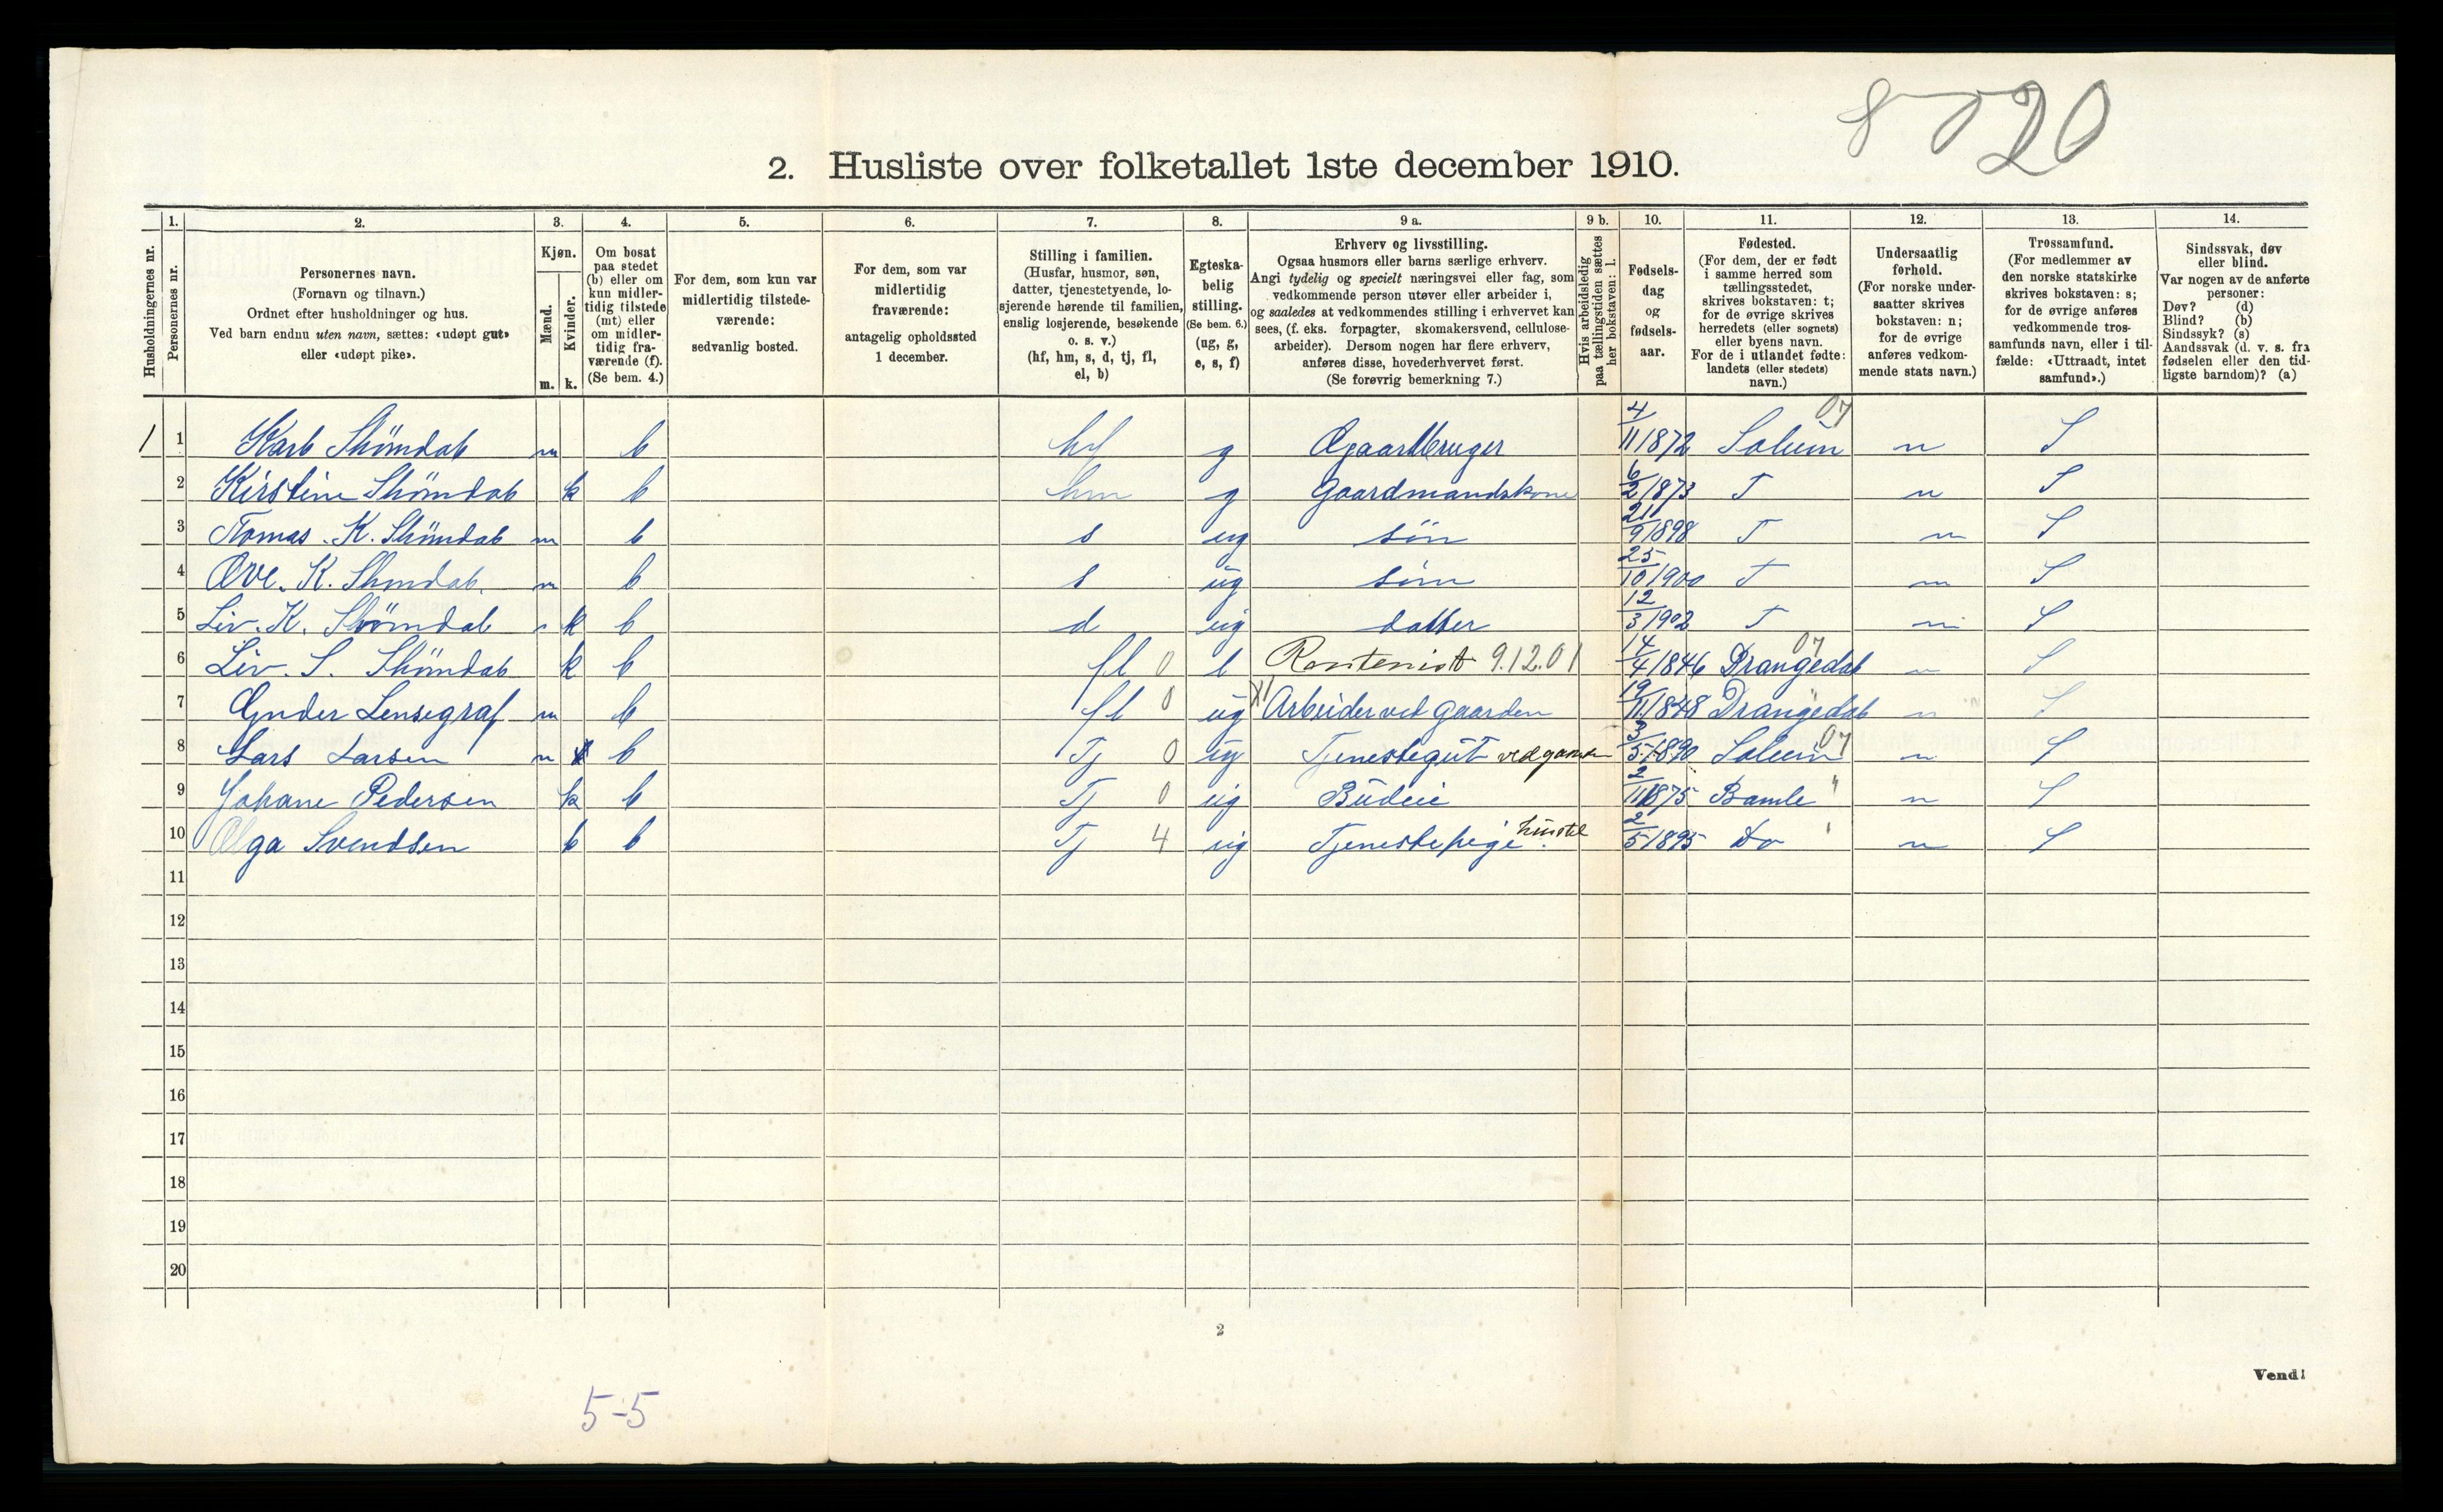 8 20
2. Husliste over folketallet 1ste december 1910.
Husholdningernes nr.
1. Personernes nr.
2. Personernes navn. (Fornavn og tilnavn.) Ordnet efter husholdninger og hus. Ved barn endnu uten navn, sættes: «udøpt gut» eller «udøpt pike».
3. Kjøn. Mænd. m. Kvinder. k.
4. Om bosat paa stedet (b) eller om kun midlertidig tilstede (mt) eller om midlertidig fraværende (f). (Se bem. 4.)
5. For dem, som kun var midlertidig tilstedeværende: sedvanlig bosted.
6. For dem, som var midlertidig fraværende: antagelig opholdssted 1 december.
7. Stilling i familien. (Husfar, husmor, søn, datter, tjenestetyende, losjerende hørende til familien, enslig losjerende, besøkende o. s. v.) (hf, hm, s, d, tj, fl, el, b)
8. Egteskabelig stilling. (Se bem. 6.) (ug, g, e, s, f)
9 a. Erhverv og livsstilling. Ogsaa husmors eller barns særlige erhverv. Angi tydelig og specielt næringsvei eller fag, som vedkommende person utøver eller arbeider i, og saaledes at vedkommendes stilling i erhvervet kan sees, (f. eks. forpagter, skomakersvend, cellulosearbeider). Dersom nogen har flere erhverv, anføres disse, hovederhvervet først. (Se forøvrig bemerkning 7.)
9 b. Hvis arbeidsledig paa tællingstiden sættes her bokstaven: l.
10. Fødselsdag og fødselsaar.
11. Fødested. (For dem, der er født i samme herred som tællingsstedet, skrives bokstaven: t; for de øvrige skrives herredets (eller sognets) eller byens navn. For de i utlandet fødte: landets (eller stedets) navn.)
12. Undersaatlig forhold. (For norske undersaatter skrives bokstaven: n; for de øvrige anføres vedkommende stats navn.)
13. Trossamfund. (For medlemmer av den norske statskirke skrives bokstaven: s; for de øvrige anføres vedkommende trossamfunds navn, eller i tilfælde: «Uttraadt, intet samfund».)
14. Sindssvak, døv eller blind. Var nogen av de anførte personer: Døv? (d) Blind? (b) Sindssyk? (s) Aandssvak (d. v. s. fra fødselen eller den tidligste barndom)? (a)
1 1 Karl Skömdal m b hf g Gaardbruger 4/11 1872 Solum 07 n S
2 Kirstine Skömdal k b hm g Gaardmandskone 6/2 1873 T n S
3 Tomas. K. Skömdal m b s ug sön 21/9 1898 T n S
4 Ove. K. Skömdal. m b s ug sön 25/10 1900 T n S
5 Liv. K. Skömdal k b d ug datter 12/3 1902 T n S
6 Liv. S. Skömdal k b fl 0 Rentenist 9.12.01 14/4 1846 Drangedal 07 n S
7 Gunder Lensegraf m b fl 0 ug Arbeider ved gaarden 19/11 1848 Drangedal n S
8 Lars Larsen m b Tj 0 ug Tjenestegut ved gaarden 3/5 1890 Solum 07 n S
9 Johane Pedersen k b Tj 0 ug Budeie 2/11 1875 Bamle " n S
10 Olga Svendsen k b Tj 4 ug Tjenestepige. hustel 2/5 1895 Do " n S
11
12
13
14
15
16
17
18
19
20
2
Vend!
5-5